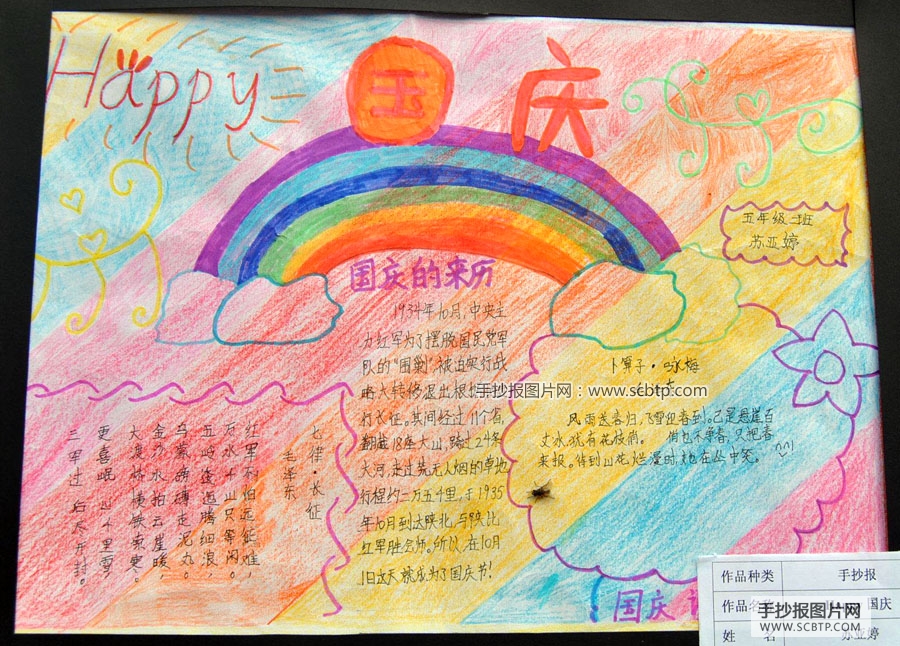 Happy 国庆
五年级二班
苏亚婷
国庆的来历
1934年10月,中央主
力红军为了摆脱国民党军
队的“围剿”,被迫实行战
略大转移退出根据
行长征。其间经过11个省,
翻越18座大山,跨过24条
大河,走过荒无人烟的草地
行程约二万五千里,于1935
年10月到达陕北,与陕北
红军胜会师。所以,在10月
1日这天就成为了国庆节!
七律·长征
毛泽东
红军不怕远征难,
万水千山只等闲。
五岭逶迤腾细浪,
乌蒙磅礴走泥丸。
金沙水拍云崖暖,
大渡桥横铁索寒。
更喜岷山千里雪,
三军过后尽开封。
卜算子·咏梅
风雨送春归,飞雪迎春到。已是悬崖百
丈冰,犹有花枝俏。俏也不争春,只把春
来报。待到山花烂漫时,她在丛中笑。
国庆
手抄报图片网:www.scbtp.com
作品种类 手抄报
作品名称 国庆
姓名 苏亚婷
手抄报图片网
WWW.SCBTP.COM